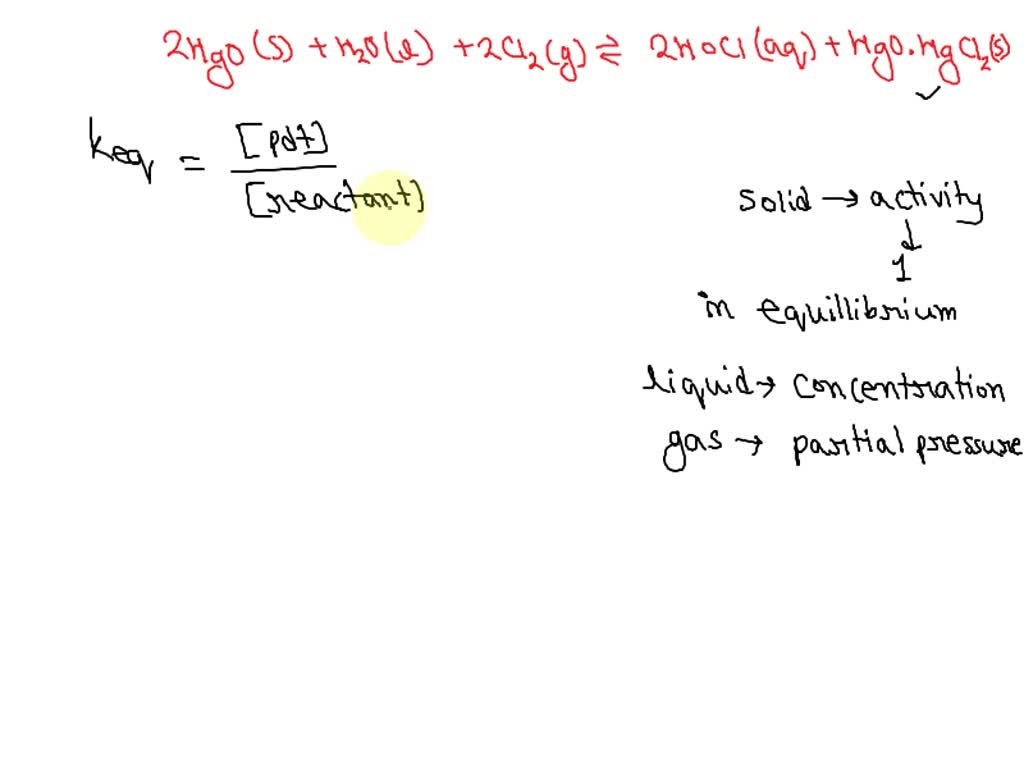 2HgO(s) + H2O(l) + 2Cl2(g) ⇌ 2HOCl(aq) + HgO.HgCl2(s)
Keq = [pdt] / [reactant]
solid → activity
↓
1
in equillibrium
liquid → concentration
gas → partial pressure